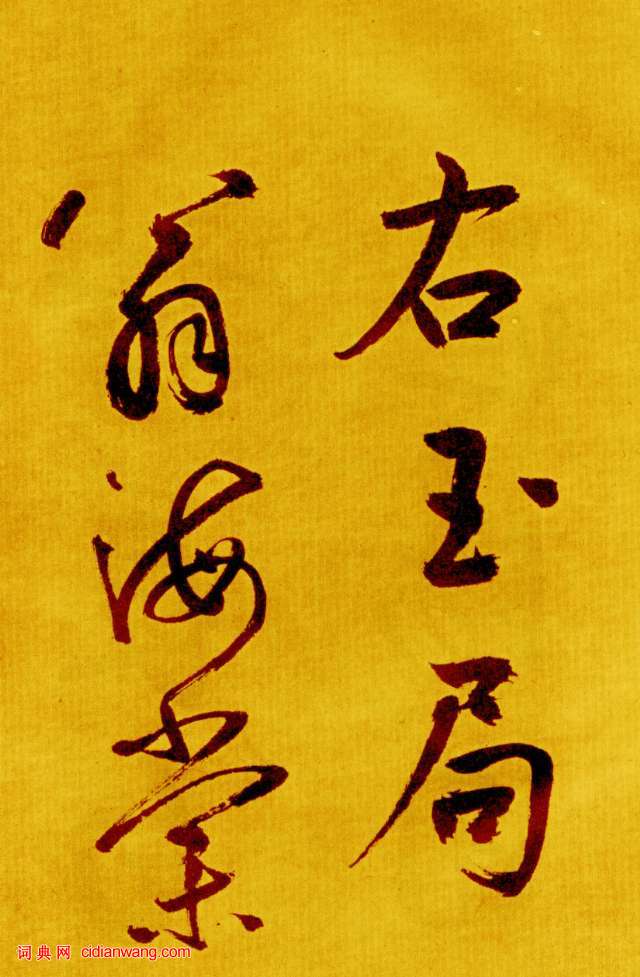 右玉局
翁海棠
词典网 cidianwang.com